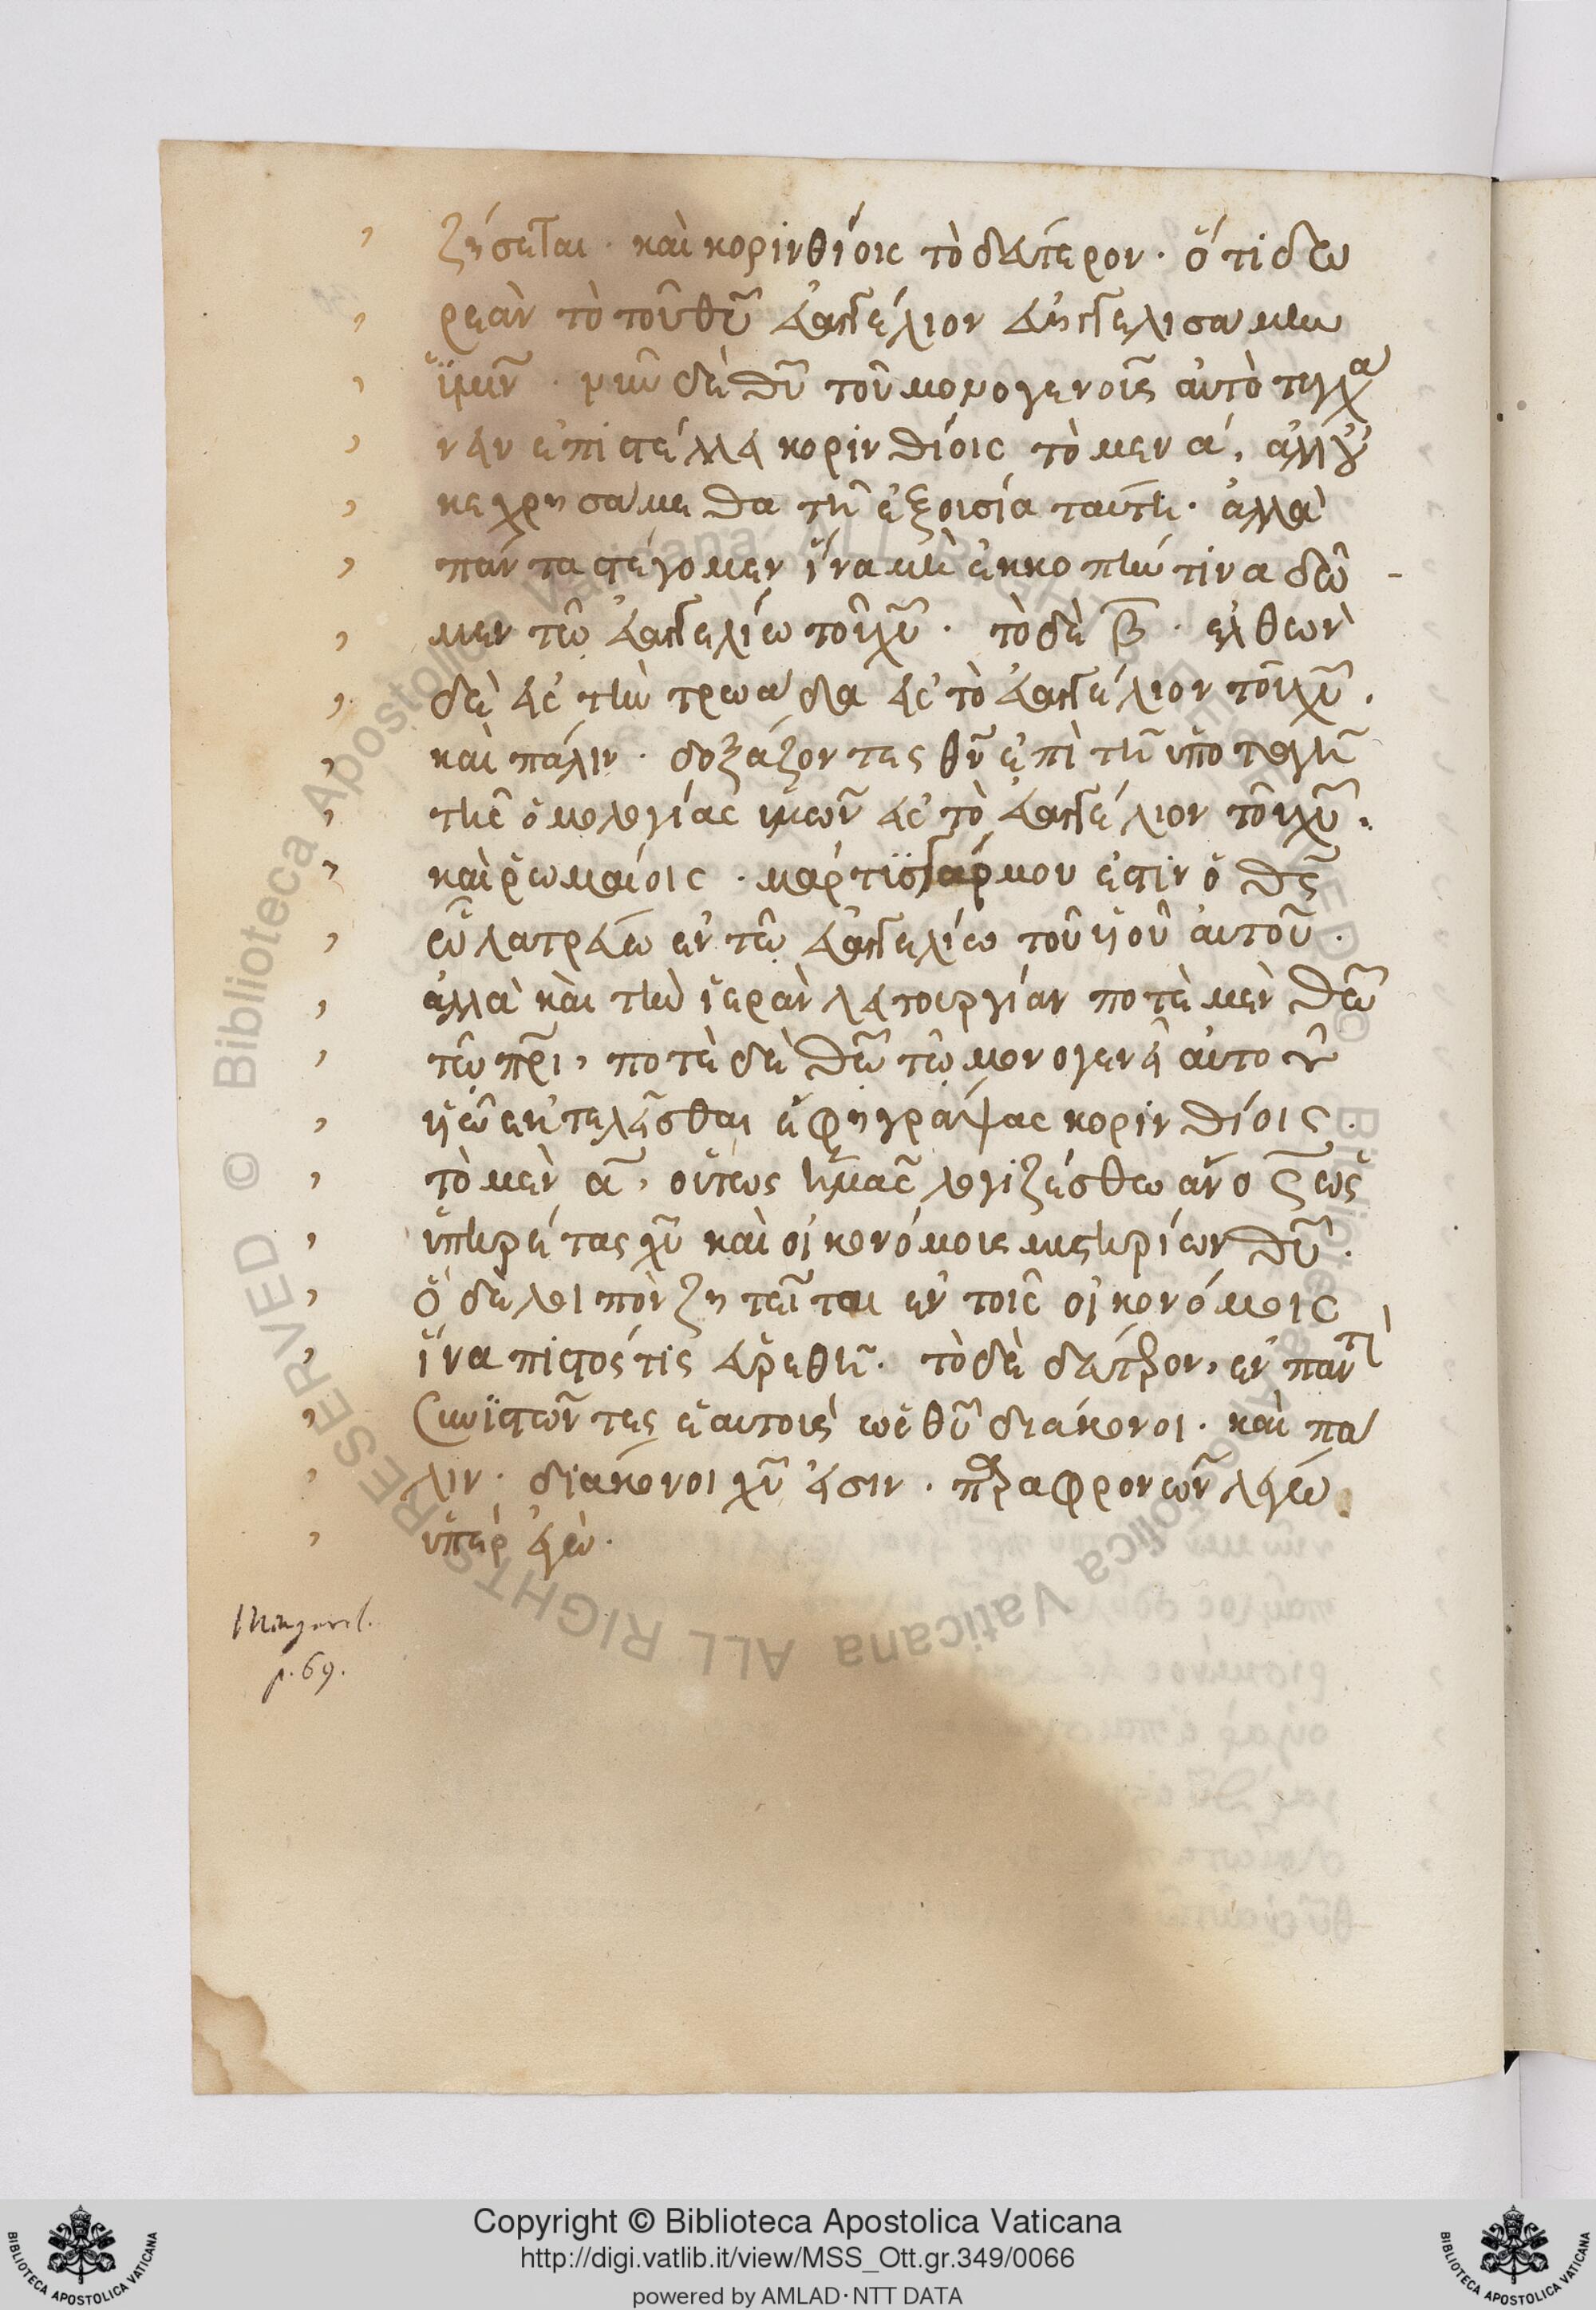 ζήσεται · καὶ κορινθίοις τὸ δεύτερον · ὅτι δω
ρεὰν τὸ τοῦ θῦ εὐαγγέλιον εὐηγγελισάμην
ϋμῖν · νυνὶ δὲ θῦ τοῦ μονογενοῦς αὐτὸ τυγχά
νειν ἐπιστέλλει κορινθίοις τὸ μεν α, ἀλλ' οὐ
κεχρήμεθα τῆ ἐξουσία ταύτη · ἀλλὰ
πάντα στέγομεν ἵνα μὴ ἐκκοπήν τινα δῶ
μεν τῶ εὐαγγελίω τοῦ χῦ · τὸ δὲ β · ἐλθὼν
δὲ εἰς τὴν τρωάδα εἰς τὸ εὐαγγέλιον τοῦ χῦ ·
καὶ πάλιν · δοξάζοντες θν ἐπὶ τῆ ὑποταγῆ
τῆς ὁμολογίας ὑμῶν εἰς τὸ εὐαγγέλιον τοῦ χῦ ·
καὶ ῥωμαίοις · μάρτυς γάρ μου ἐστὶν ὁ θς
ὧ λατρεύω ἐν τῶ εὐαγγελίω τοῦ υἱοῦ αὐτοῦ ·
ἀλλὰ καὶ τὴν ἱερὰν λειτουργίαν ποτὲ μὲν θῶ
τῶ πρι, ποτὲ δὲ θῶ τῶ μονογενεῖ αὐτοῦ
υἱῶ ἐκτελεῖσθαι ἔφη γράψας κορινθίοις ·
τὸ μὲν α, οὕτως ἡμᾶς λογιζέσθω ανος ὡς
ὑπηρέτας χῦ καὶ οἰκονόμους μυστηρίων θῦ ·
ὃ δὲ λοιπὸν ζητεῖται ἐν τοῖς οἰκονόμοις
ἵνα πιστός τις εὑρεθῆ · τὸ δὲ δεύτερον, ἐν παντὶ
συνϊστῶντες ἑαυτοὺς ὡς θῦ διάκονοι · καὶ πά
λιν · διάκονοι χῦ εἰσιν · παραφρονῶν λέγω
ὑπὲρ ἐγώ ·
Mingarel.
p. 69.
Copyright © Biblioteca Apostolica Vaticana
http://digi.vatlib.it/view/MSS_Ott.gr.349/0066
powered by AMLAD·NTT DATA
BIBLIOTECA APOSTOLICA VATICANA
BIBLIOTECA APOSTOLICA VATICANA
© Biblioteca Apostolica Vaticana ALL RIGHTS RESERVED
© Biblioteca Apostolica Vaticana ALL RIGHTS RESERVED